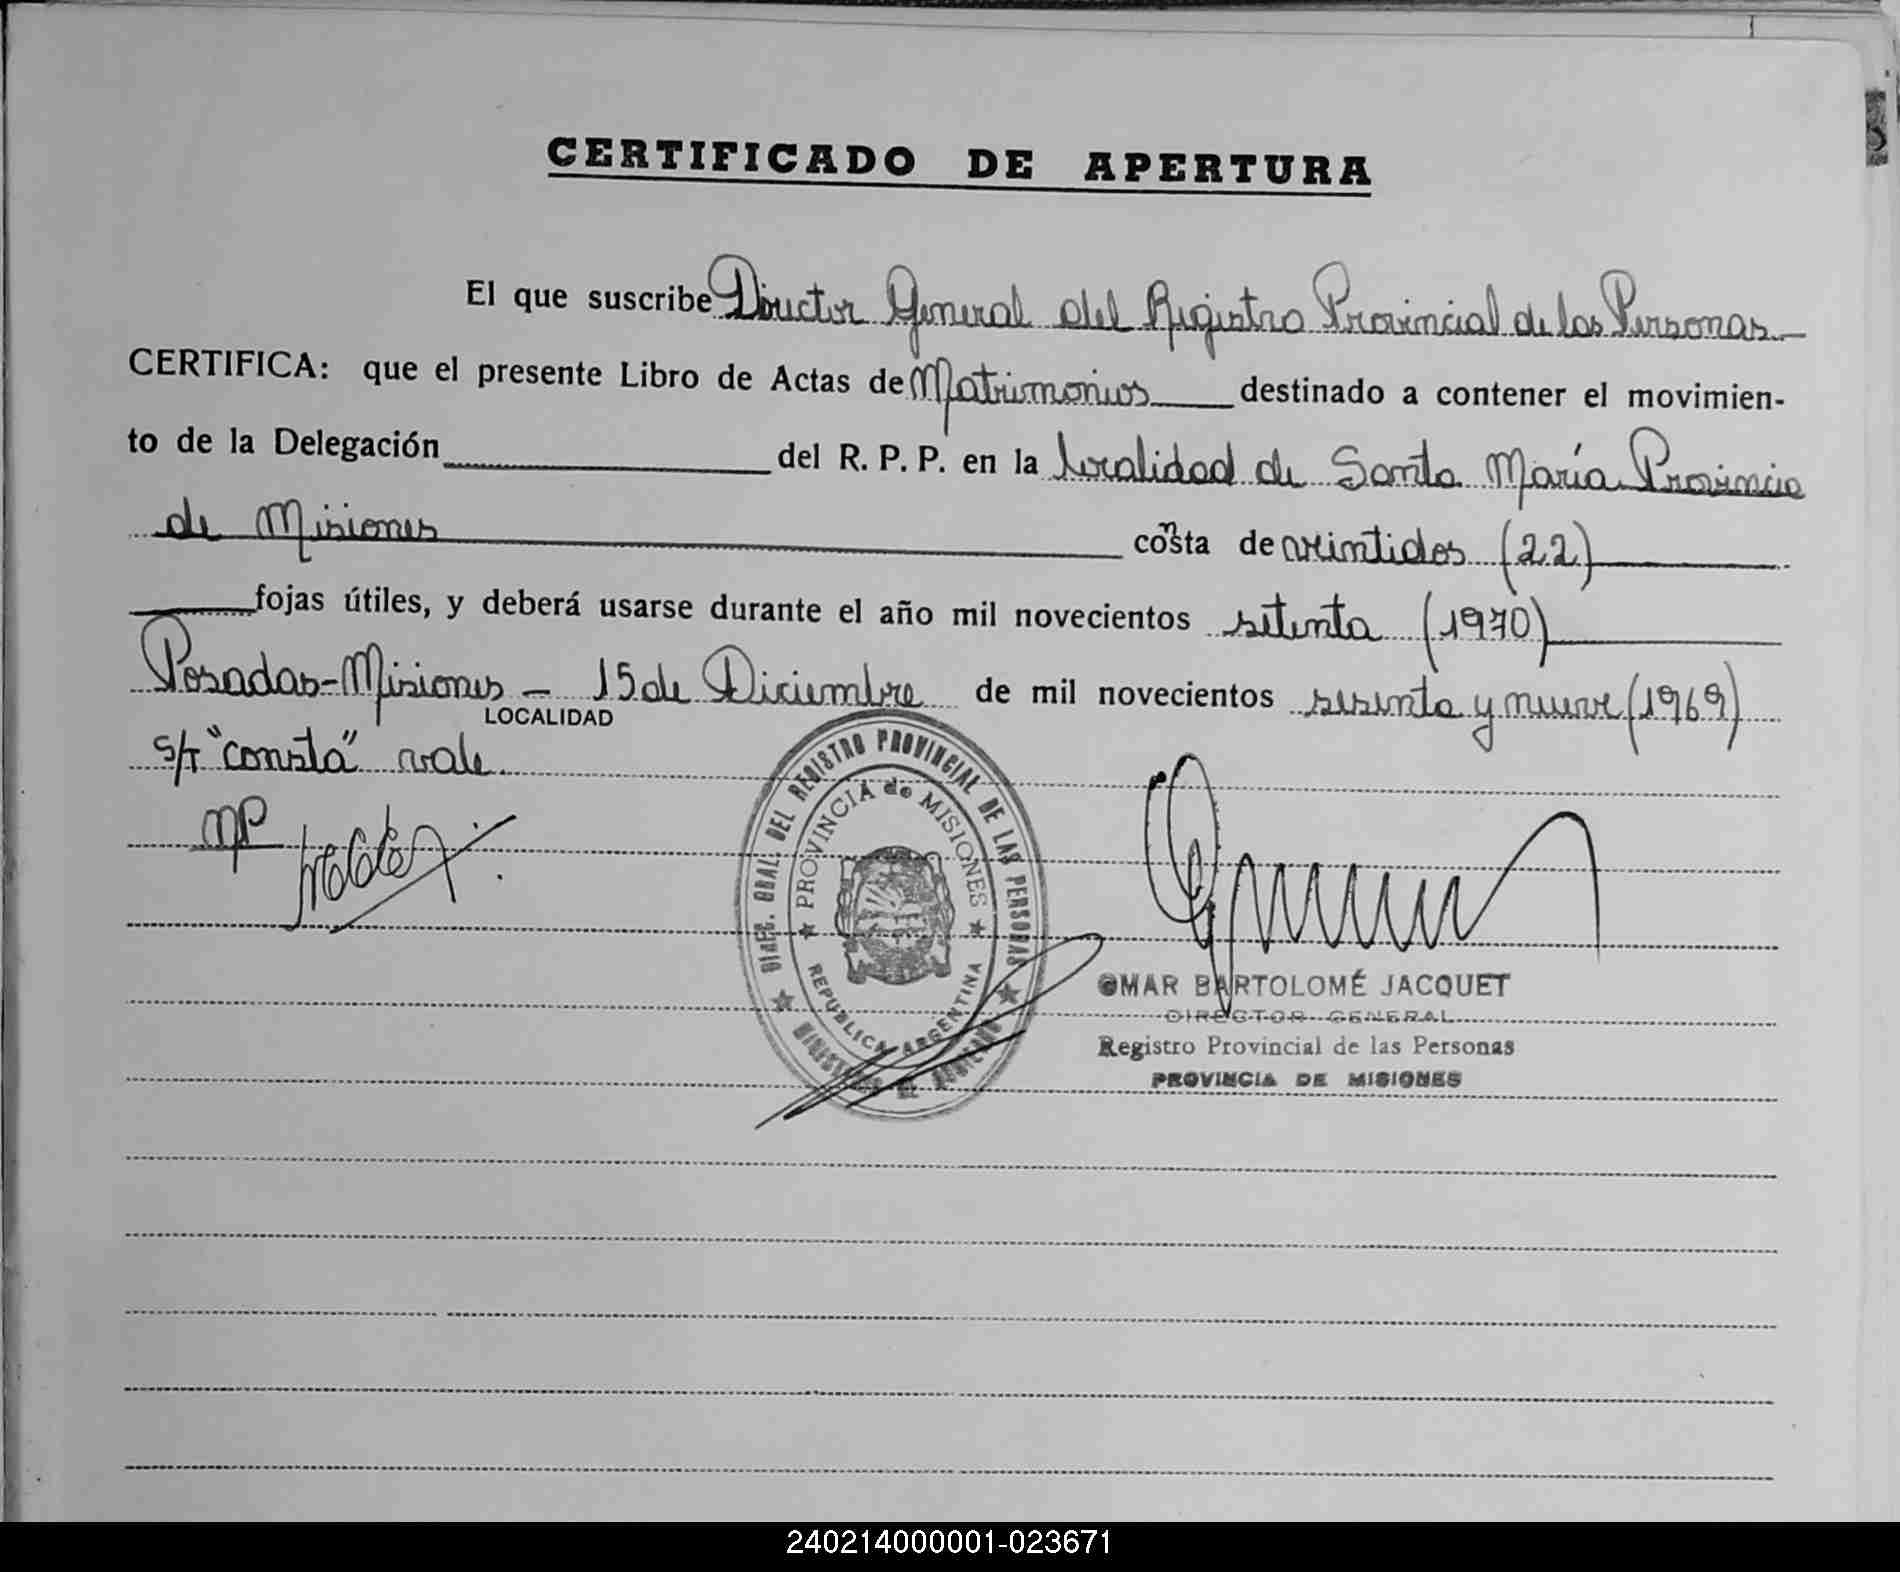 CERTIFICADO DE APERTURA
El que suscribe Director General del Registro Provincial de las Personas
CERTIFICA: que el presente Libro de Actas de Matrimonios destinado a contener el movimien-
to de la Delegación del R. P. P. en la localidad de Santa María Provincia
de Misiones consta de veintidos (22)
fojas útiles, y deberá usarse durante el año mil novecientos setenta (1970)
Posadas-Misiones - 15 de Diciembre de mil novecientos sesenta y nueve (1969)
LOCALIDAD
S/r "consta" vale
MP
DIREC. GRAL. DEL REGISTRO PROVINCIAL DE LAS PERSONAS
PROVINCIA de MISIONES
REPUBLICA ARGENTINA
OMAR BARTOLOMÉ JACQUET
DIRECTOR GENERAL
Registro Provincial de las Personas
PROVINCIA DE MISIONES
240214000001-023671